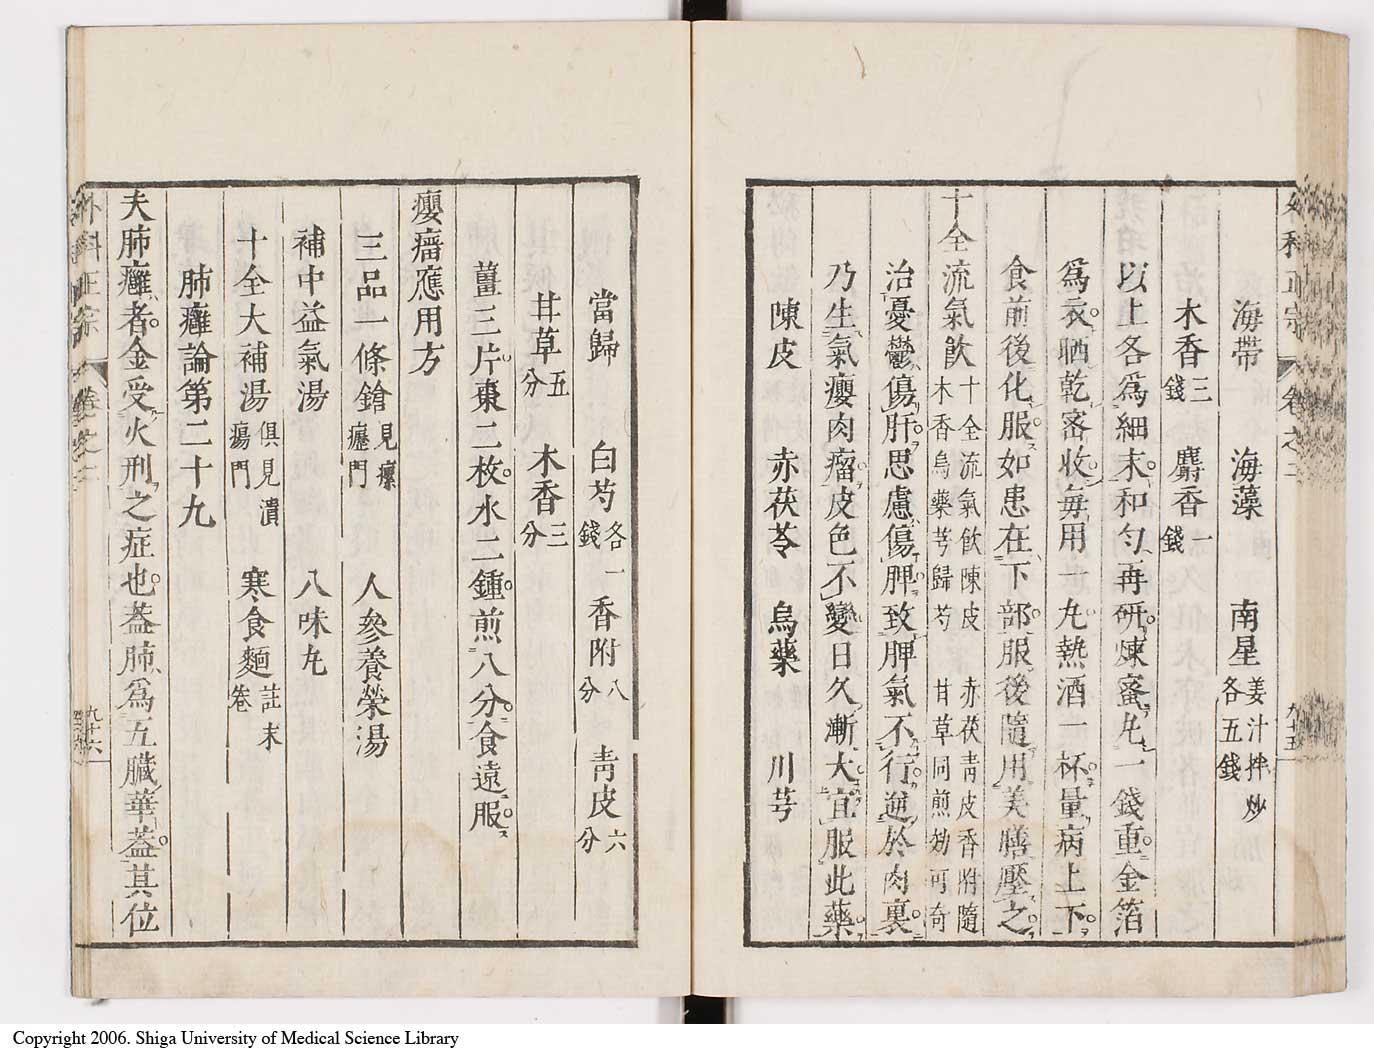 外科正宗 卷之二 九十五
海帶 海藻 南星姜汁拌炒各五錢
木香三錢 麝香一錢
以上各爲細末和勻再研煉蜜丸一錢重金箔
爲衣晒乾密收毎用一丸熱酒一杯量病上下
食前後化服如患在下部服後隨用美膳壓之
十全流氣飲十全流氣飲陳皮赤茯青皮香附隨木香烏藥芎歸芍甘草同煎効可奇
治憂鬱傷肝思慮傷脾致脾氣不行逆於肉裏
乃生氣癭肉瘤皮色不變日久漸大宜服此藥
陳皮 赤茯苓 烏藥 川芎
當歸 白芍各一錢 香附八分 青皮六分
甘草五分 木香三分
薑三片棗二枚水二鍾煎八分食遠服
癭瘤應用方
三品一條鎗見瘰癧門 人參養榮湯
補中益氣湯 八味丸
十全大補湯俱見潰瘍門 寒食麵註末卷
肺癰論第二十九
夫肺癰者金受火刑之症也蓋肺爲五臟華蓋其位
外科正宗 卷之二 九十六
Copyright 2006. Shiga University of Medical Science Library